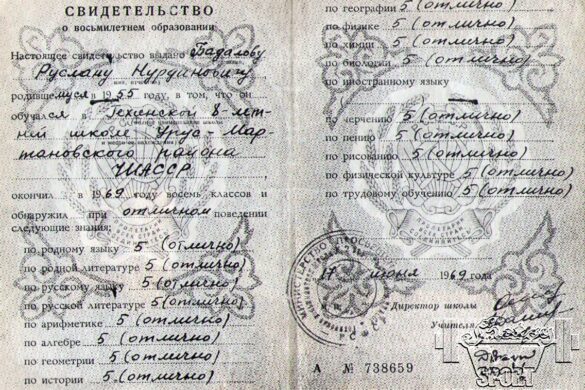 СВИДЕТЕЛЬСТВО
о восьмилетнем образовании
Настоящее свидетельство выдано Бадалову
Руслану Нурдиновичу
родившемуся в 1955 году, в том, что он
обучался Гехинской 8 лет-
ней школе Урус-Мар-
тановского района
ЧИАССР
окончил в 1969 году восемь классов и
обнаружил при отличном поведении
следующие знания:
по родному языку 5 (отлично)
по родной литературе 5 (отлично)
по русскому языку 5 (отлично)
по русской литературе 5 (отлично)
по арифметике 5 (отлично)
по алгебре 5 (отлично)
по геометрии 5 (отлично)
по истории 5 (отлично)
по географии 5 (отлично)
по физике 5 (отлично)
по химии 5 (отлично)
по биологии 5 (отлично)
по иностранному языку
по черчению 5 (отлично)
по пению 5 (отлично)
по рисованию 5 (отлично)
по физической культуре 5 (отлично)
по трудовому обучению 5 (отлично)
17 июня 1969 года
Директор школы
Учителя
А № 738659
SPORT